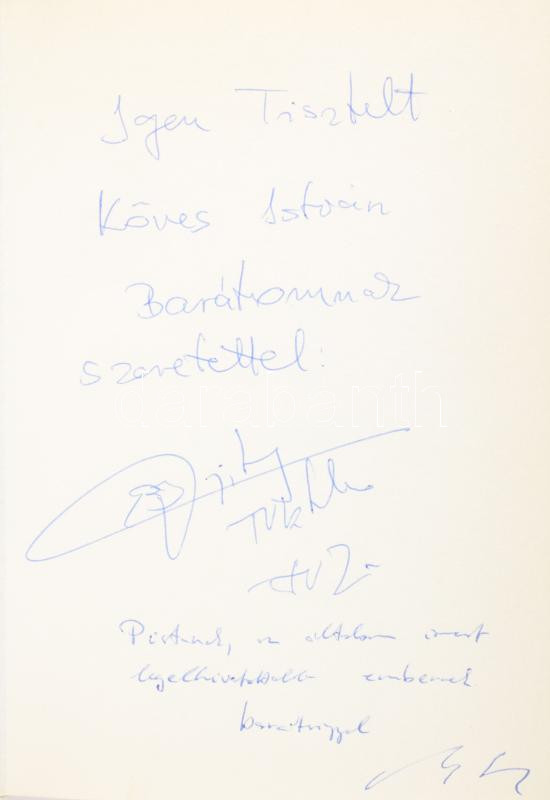 Igen Tisztelt
Köves István
Barátomnak
szeretettel:
darabanth
Pistának, az általam ismert
legelhivatottabb embernek
barátsággal